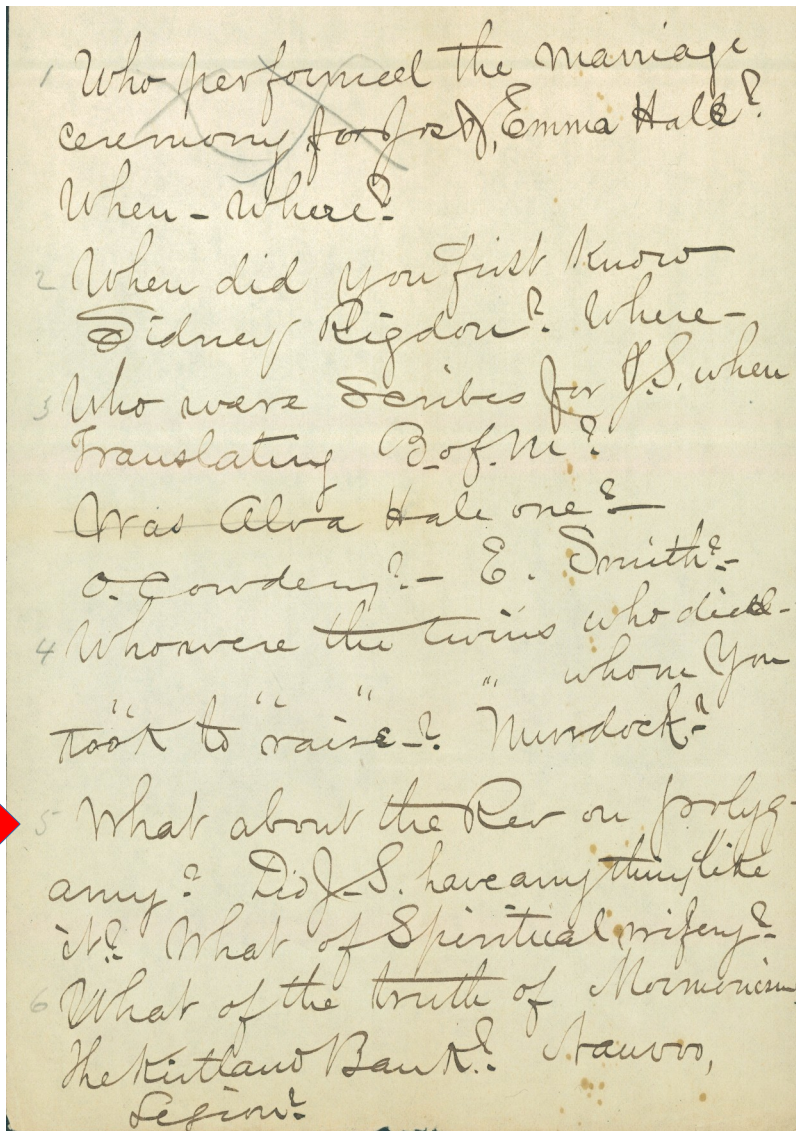 1 Who performed the marriage
ceremony for Jos &, Emma Hale?
When - Where?
2 When did you first know
Sidney Rigdon? Where -
3 Who were scribes for J.S. when
Translating B. of. M?
Was Alva Hale one? -
O. Cowdery? - E. Smith? -
4 Who were the twins who died -
" " " " whom You
took to raise -? Murdock? -
5 What about the Rev on polyg-
amy? Did J. S. have anything like
it? What of Spiritual wifery? -
6 What of the truth of Mormonism,
The Kirtland Bank? Nauvoo,
Legion?